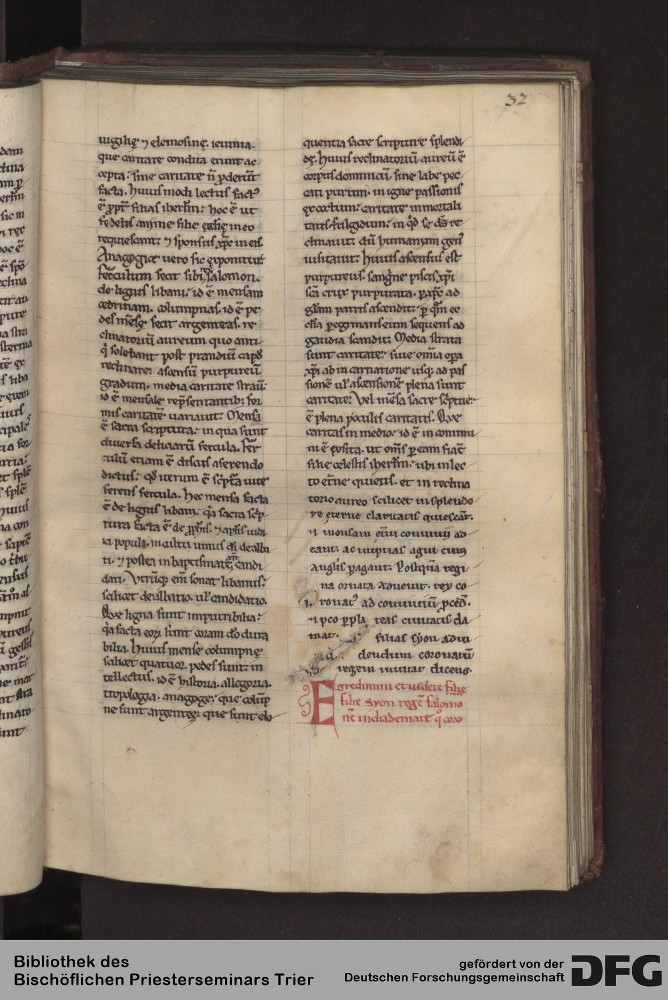 32
uigilię ⁊ elemosinę. ieiunia.
que caritate condita erunt ac-
cepta: sine caritate ñ ꝓderūt
facta. Huius modi lectus fact᷒
ē ꝓpt̄ filias iherłm: hoc ē ut
fideles anime filie ęcclesię in eo
requiescant: ⁊ sponsus xp̄c in eis.
Anagogice uero sic exponitur
ferculum fecit sibi rex salomon.
de lignis libani: id ē mensam
cedrinam. columpnas. id ē pe-
des mensę fecit argenteas. re-
clinatoriū aureum quo ami-
q̇ solebant post prandiū capd
reclinare: ascensū purpureū
gradum. media caritate strauit
id ē mensale repsentantib; for
mis caritatē uariauit. Mensa
ē sacra scriptura: in qua sunt
diuersa deliciarū fercula. fer-
culū etiam ē discus a ferendo
dictus: qd iterum ē scptā uite
ferens fercula. Hec mensa facta
ē de lignis libani. qa sacra scp-
tura facta ē de ꝓphis. ⁊ aplis iudai
ci populi. in cultu unius di dealba
ti. ⁊ postea in baptismate candi
dati. Utrūq; eni sonat libanus:
scilicet dealbatio. ul candidatio.
Que ligna sunt imputribilia:
qa facta eorū sunt coram dō dura
bilia. Huius mense columpnę
scilicet quatuor pedes sunt: in
tellectus. id ē historia. allegoria.
tropologia. anagoge: que colūp
ne sunt argenteę: que sunt elo
quentia sacre scripture splendi
dę. Huius reclinatoriū aureū ē
corpus dominicū sine labe pec
cati purum. in igne passionis
excoctum: caritate inmortali
tatis fulgidum: in qd se ds re
clinauit: cū humanam gen᷒
uisitauit: Huius ascensus est
purpureus. sanguine piscis xpi
scā crux purpurata. ꝑ quā xp̄c ad
glam patris ascendit: ꝑ quā ec
clia peregrinans eum sequens ad
gaudia scandit. Media strata
sunt caritate: siue omia opa
xpi ab incarnatione usq; ad pas
sionē ul ascensionē plena sunt
caritate: Vel mensa sacre scpture
ē plena poculis caritatis. Que
caritas in medio: id ē in commu
ni ē posita. ut oms ꝑ eam fiant
filie celestis iherłm: ubi in lec
to etne quietis. et in reclina
torio aureo scilicet in splendo
re eterne claritatis quiescāt.
⁊ mensam etni conuiuii ad
eant. ac nuptias agni cum
anglis pagant. Postquā regi
na ornata aduenit. rex co
ronat᷒ ad conuiuiū pcedit.
⁊ pco ꝑ plateas ciuitatis cla
mat. filias syon adui
dendum coronatū
regem inuitat dicens.
Egredimini et uidete filię
filie syon regē salomo
nē in diademate q̇ coro
Bibliothek des
Bischöflichen Priesterseminars Trier
gefördert von der
Deutschen Forschungsgemeinschaft
DFG